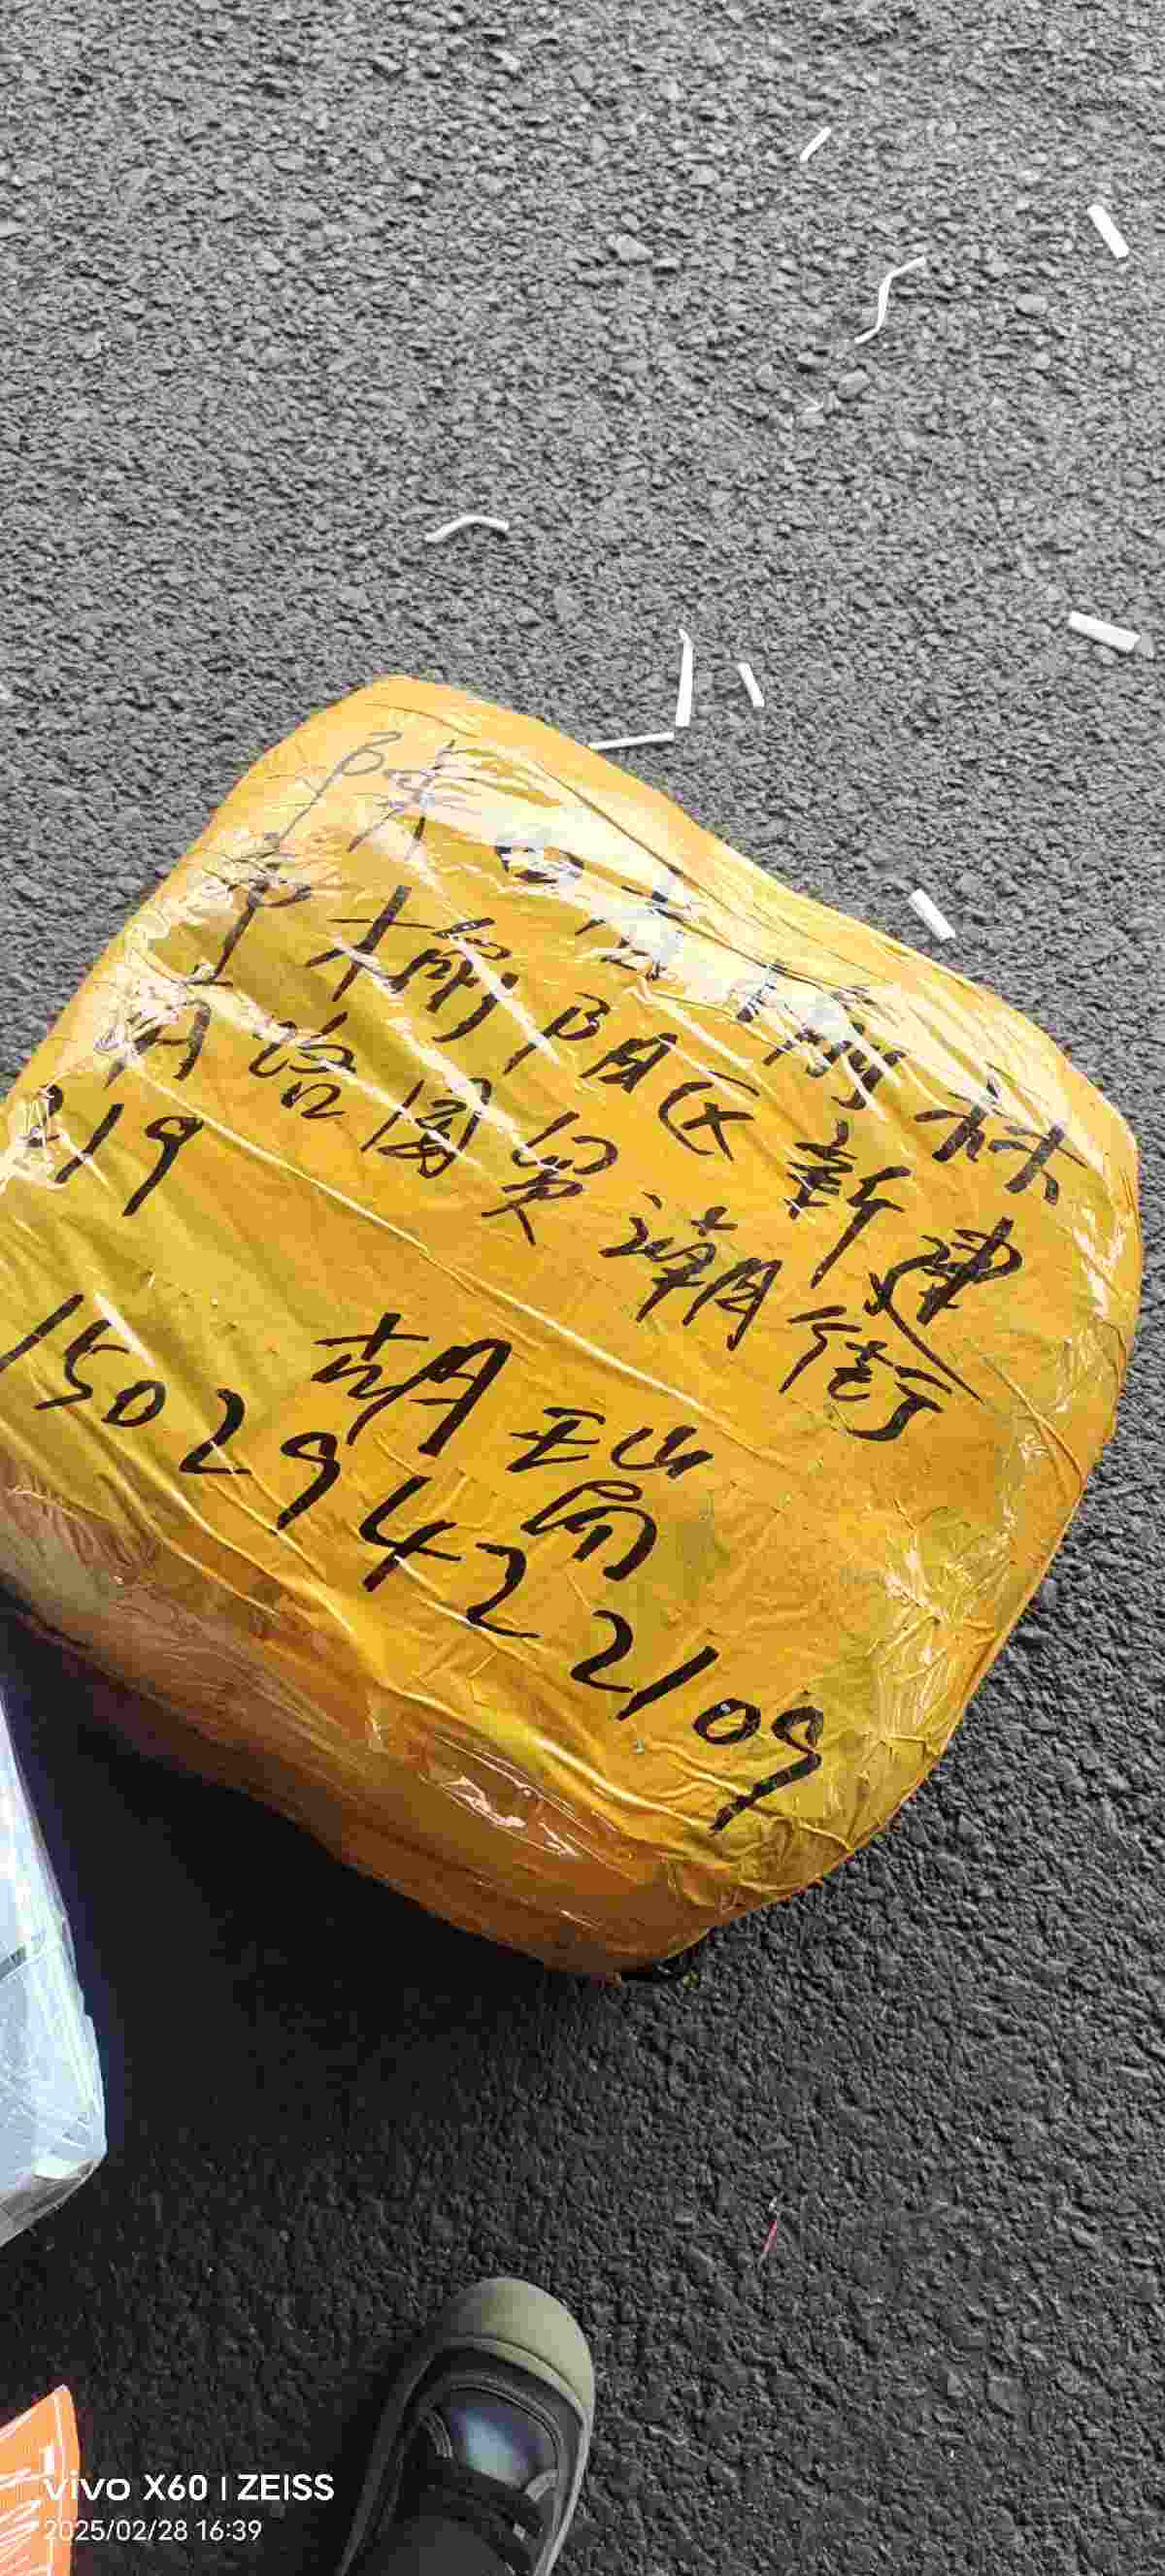 陕西省榆林
市榆阳区新建
南路国贸潮街
219
胡瑞
15029422109
vivo X60 | ZEISS
2025/02/28 16:39